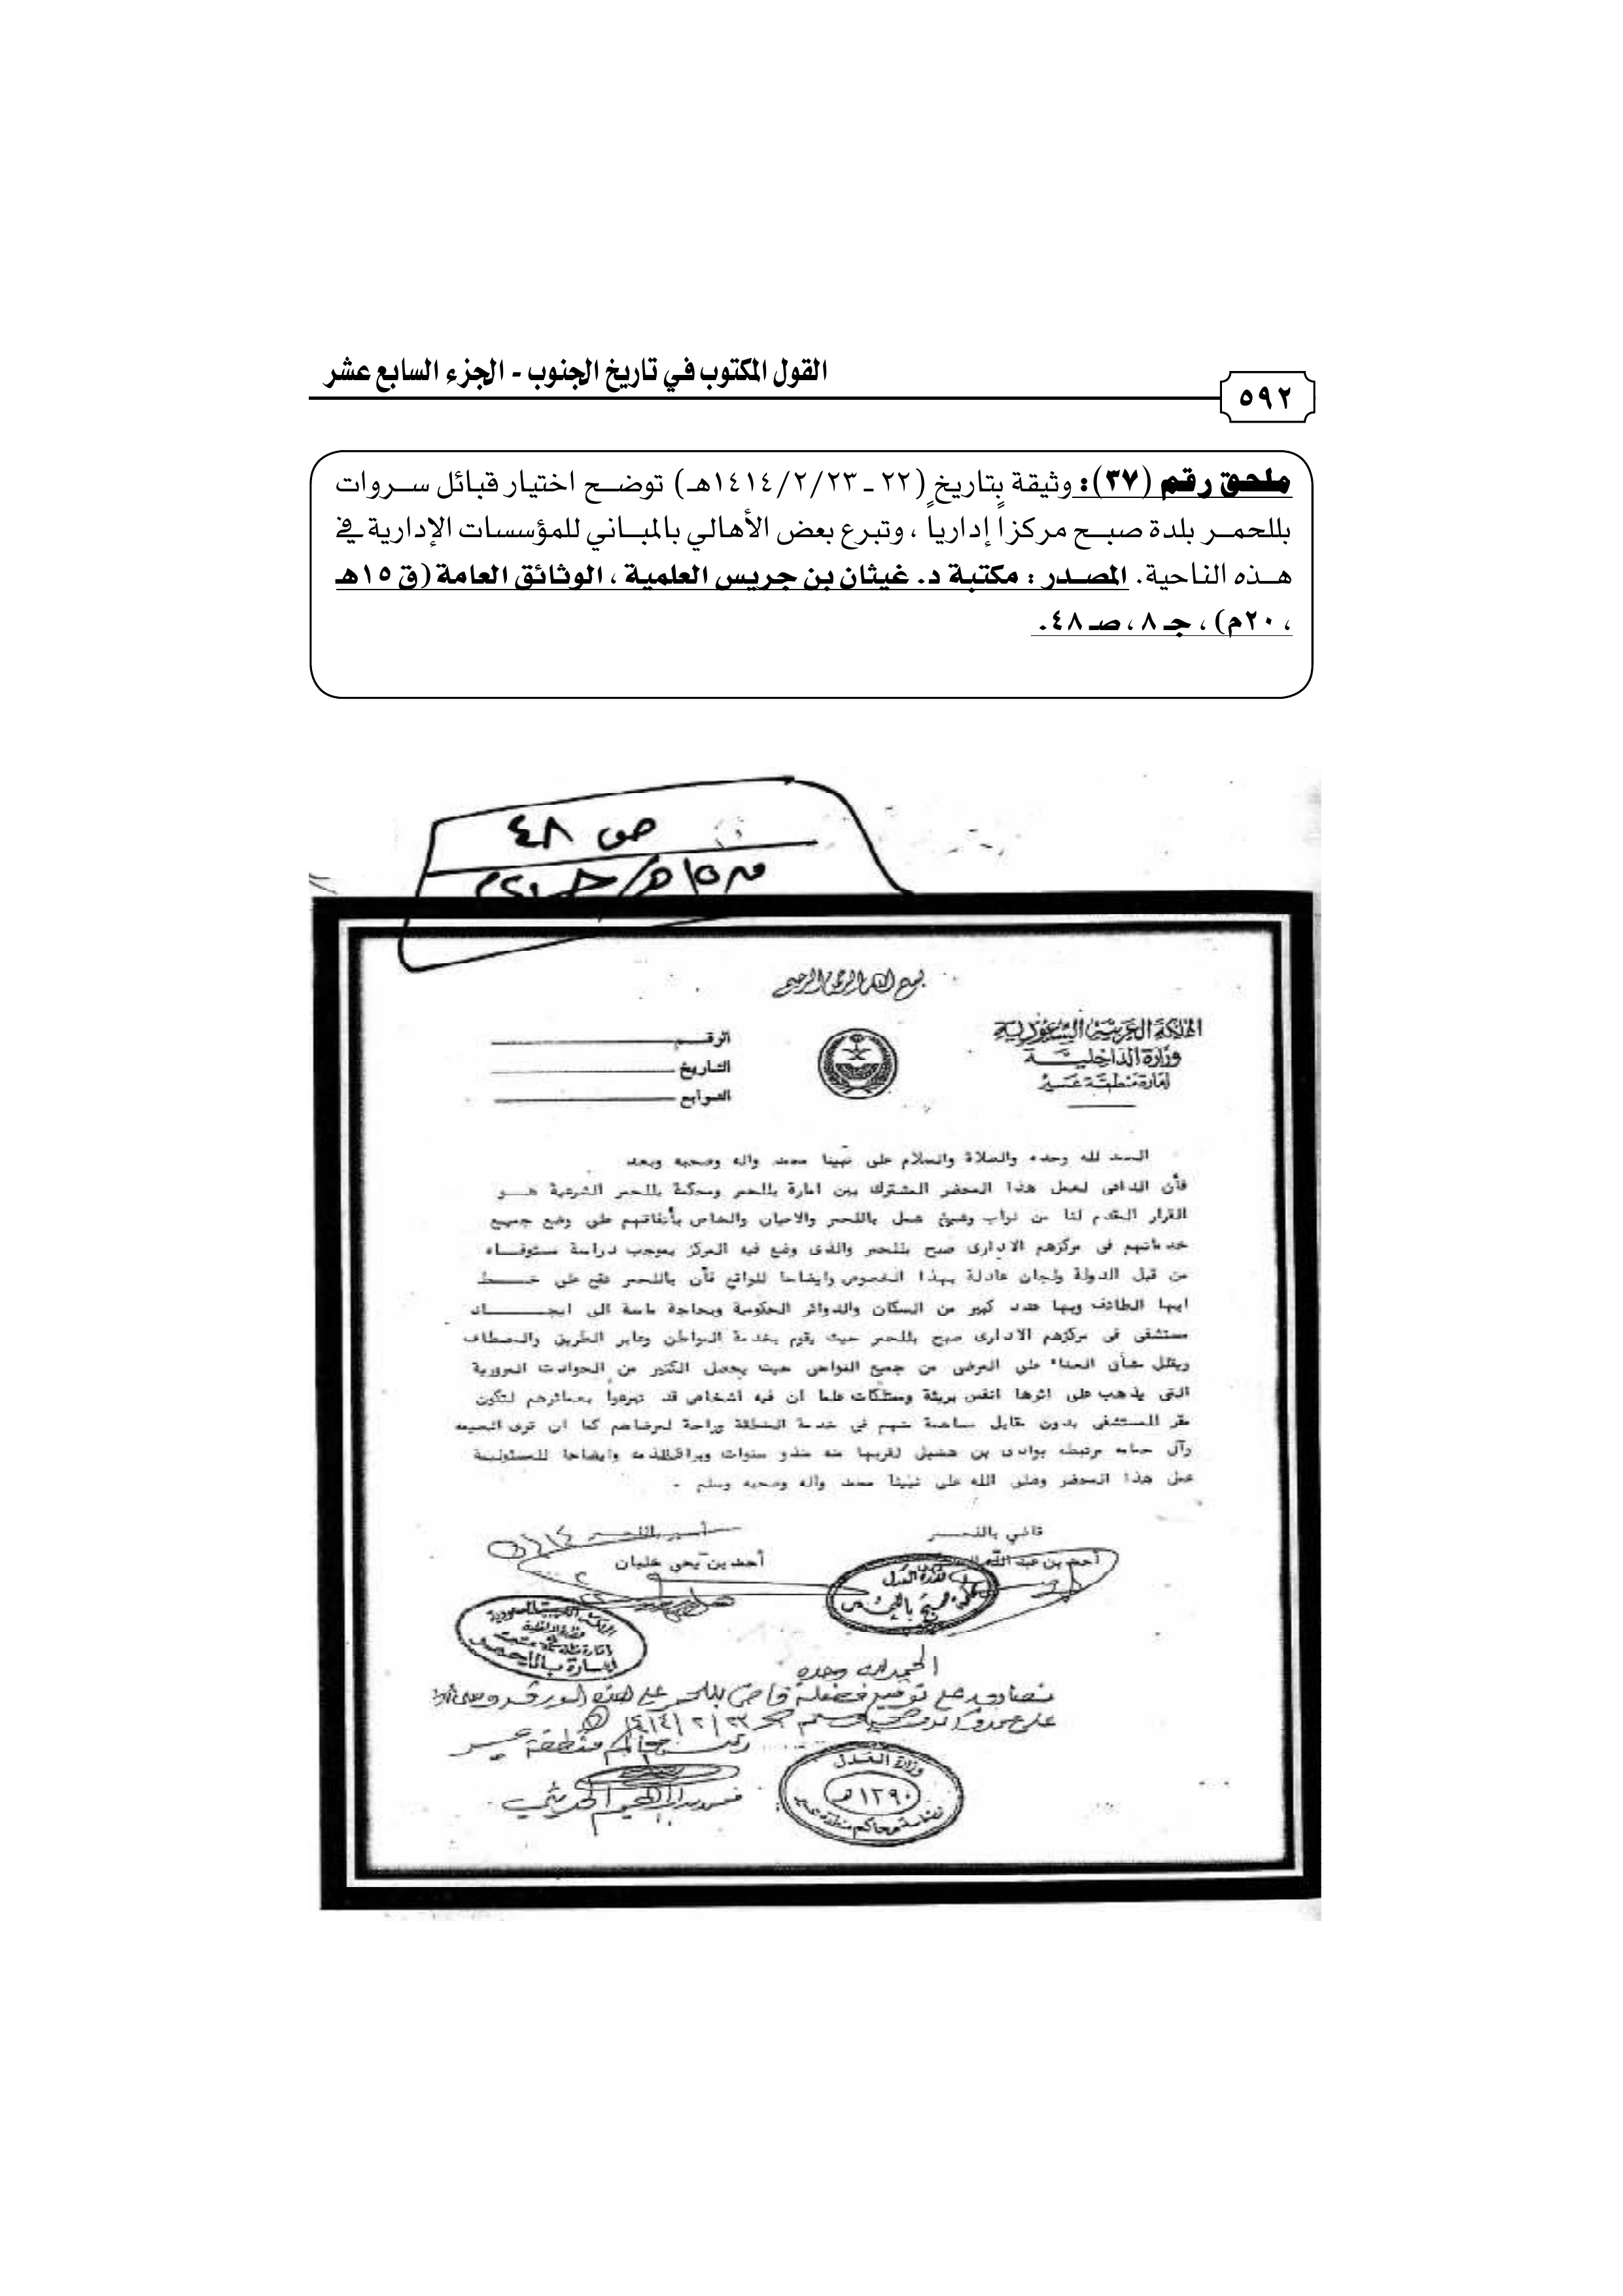 القول المكتوب في تاريخ الجنوب - الجزء السابع عشر
٥٩٢
ملحق رقم (٣٧): وثيقة بتاريخ (٢٢ ـ ١٤١٤/٢/٢٣هـ) توضح اختيار قبائل سروات
بللحمر بلدة صبح مركزاً إدارياً ، وتبرع بعض الأهالي بالمباني للمؤسسات الإدارية في
هذه الناحية. المصدر : مكتبة د. غيثان بن جريس العلمية ، الوثائق العامة (ق ١٥هـ
، ٢٠م) ، جـ ٨ ، صـ ٤٨.
ص ٤٨
بسم الله الرحمن الرحيم
المملكة العربية السعودية
وزارة الداخلية
إمارة منطقة عسير
الرقم
التاريخ
التوابع
الحمد لله وحده والصلاة والسلام على نبينا محمد واله وصحبه وبعد
فأن الداعى لعمل هذا المحضر المشترك بين امارة بللحمر ومحكمة بللحمر الشرعية هو
القرار المقدم لنا من نواب وشيخ شمل باللحمر والاعيان والخاص بأتفاقهم على وضع جميع
خدماتهم فى مركزهم الادارى صبح بللحمر والذى وضع فيه المركز بموجب دراسة مستوفاه
من قبل الدولة ولجان عادلة بهذا الخصوص وايضاحا للواقع فأن باللحمر تقع على خط
ابها الطائف وبها عدد كبير من السكان والدوائر الحكومية وبحاجة ماسة الى ايجاد
مستشفى فى مركزهم الادارى صبح بللحمر حيث يقوم بخدمة المواطن وعابر الطريق والمصطاف
ويقلل من العناء على المرضى من جميع النواحى حيث يحصل الكثير من الحوادث المرورية
التى يذهب على اثرها انفس بريئة وممتلكات علما ان فيه اشخاص قد تبرعوا بعمائرهم لتكون
مقر للمستشفى بدون مقابل مساهمة منهم فى خدمة المنطقة وراحة لمرضاهم كما ان قرى
وآل مرتبطه بوادى بن هشبل لقربها منه منذو سنوات وايضاحا للمسئولية
عمل هذا المحضر وصلى الله على نبينا محمد واله وصحبه وسلم .
قاضي باللحمر
أمير باللحمر
أحمد بن عبد الله
أحمد بن يحي علبان
وزارة العدل
محكمة صبح باللحمر
المملكة العربية السعودية
وزارة الداخلية
إمارة باللحمر
الحمد لله وحده
توقيع فضيلة قاضي بللحمر على هذه الورقة وصلى الله
على محمد وآله وصحبه وسلم ١٤١٤/٢/٢٣
رئيس محاكم منطقة عسير
وزارة العدل
١٣٩٠هـ
رئاسة محاكم منطقة عسير